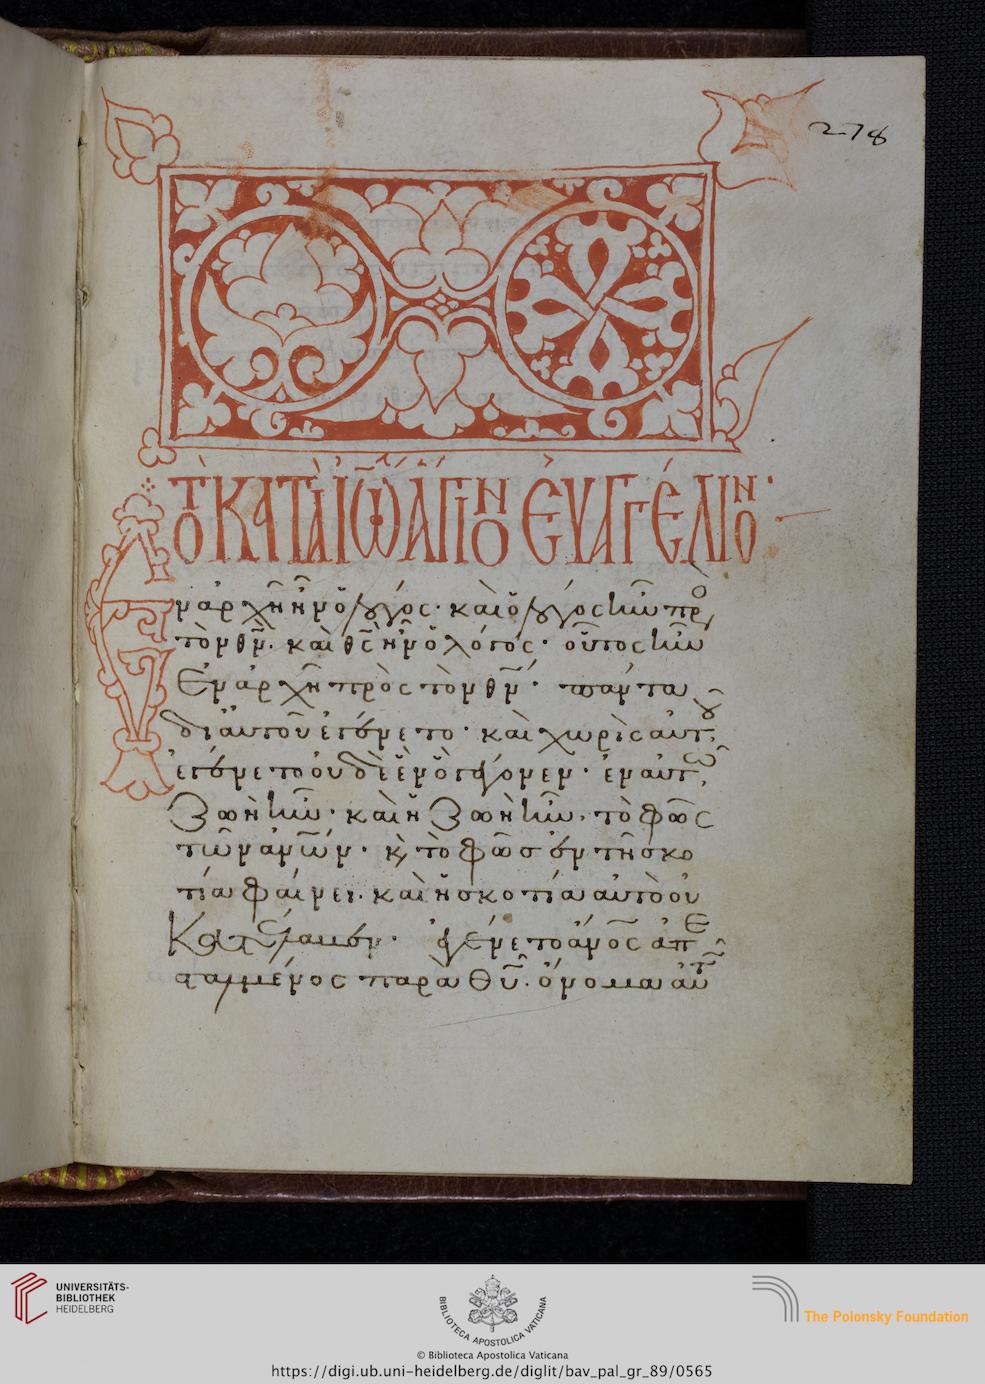 278
τὸ κατὰ ἰω ἅγιον εὐαγγέλιον
Ἐν ἀρχῇ ἦν ὁ λόγος· καὶ ὁ λόγος ἦν πρὸς
τὸν θν· καὶ θς ἦν ὁ λόγος· οὗτος ἦν
ἐν ἀρχῇ πρὸς τὸν θν· πάντα
δι αὐτοῦ ἐγένετο· καὶ χωρὶς αὐτοῦ
ἐγένετο οὐδὲ ἓν ὃ γέγονεν· ἐν αὐτῶ
ζωὴ ἦν· καὶ ἡ ζωὴ ἦν τὸ φῶς
τῶν ανων· κ τὸ φῶς ἐν τῇ σκο
τία φαίνει· καὶ ἡ σκοτία αὐτὸ οὐ
κατέλαβεν· ἐγένετο ανος ἀπε
σταλμένος παρὰ θυ· ὄνομα αὐτῶ
UNIVERSITÄTS-
BIBLIOTHEK
HEIDELBERG
BIBLIOTECA APOSTOLICA VATICANA
The Polonsky Foundation
© Biblioteca Apostolica Vaticana
https://digi.ub.uni-heidelberg.de/diglit/bav_pal_gr_89/0565